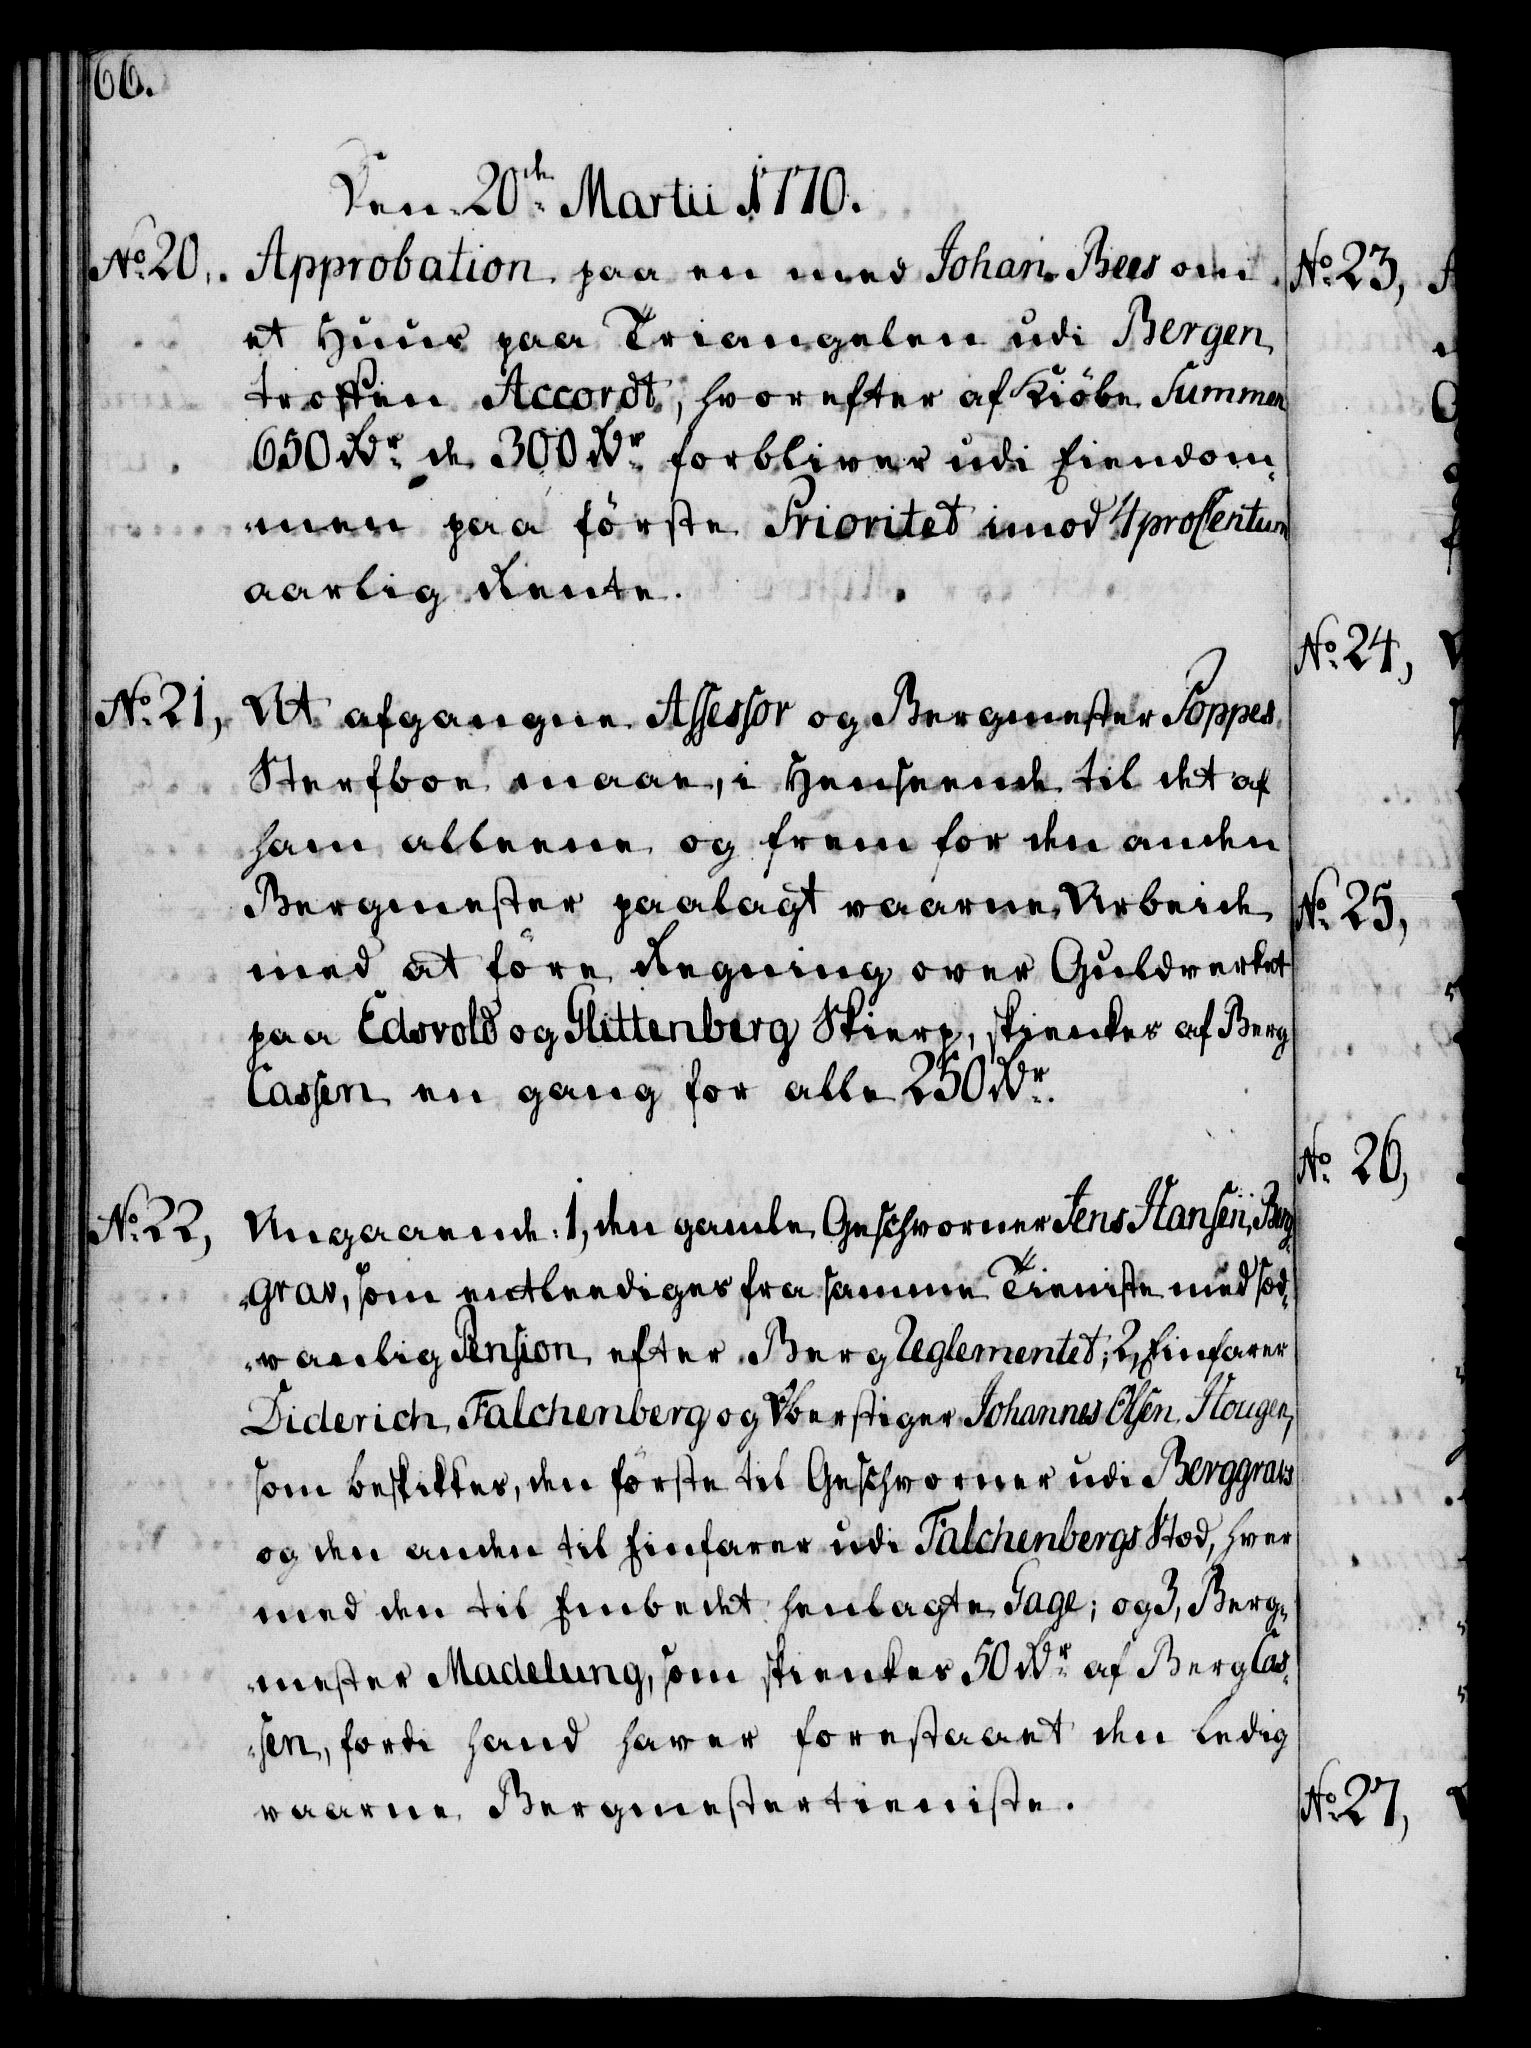 66.
Den 20de Martii 1770.
No. 20, Approbation paa en med Johan Bees om
et Huus paa Triangelen udi Bergen
troffen Accordt, hvorefter af Kiöbe Summen
650 Rdr. de 300 Rdr. forbliver udi Eiendom-
-men paa förste Prioritet imod 4 proCentum
aarlig Rente.
No. 21, At afgangne Assessor og Bergmester Poppes
Sterfboe maae, i Henseende til det af
ham alleene og frem for den anden
Bergmester paalagt vaarne Arbeide
med at före Regning over Guldverket
paa Edsvold og Glittenberg Skierp, skienkes af Berg
Cassen en gang for alle 250 Rdr.
No. 22, Angaaende: 1, den gamle Geschvorner Jens Hansen, Berg-
-grav, som entleediges fra samme Tieniste med sæd-
-vanlig Pension efter Berg Reglementet; 2, Einfarer
Diderich Falchenberg og Oberstiger Johannes Olsen Hougen,
som beskikkes, den förste til Geschvorner udi Berggravs
og den anden til Einfarer udi Falchenbergs Stæd, hver
med den til Embedet henlagte Gage; og 3, Berg-
-mester Madelung, som skienkes 50 Rdr. af Berg Cas-
-sen, fordi hand haver forestaaet den ledig
vaarne Bergmestertieniste.
No. 23,
No. 24,
No. 25,
No. 26,
No. 27,